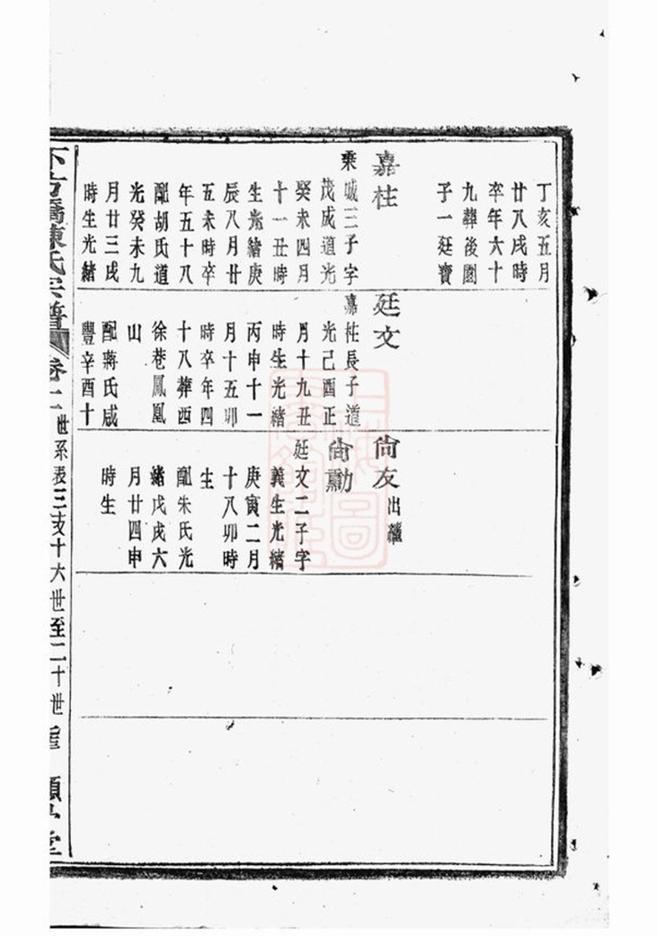 丁亥五月
廿八戌時
卒年六十
九葬後園
子一廷寶
嘉柱
秉城三子字
茂成道光
癸未四月
十一丑時
生光緒庚
辰八月廿
五未時卒
年五十八
配胡氏道
光癸未九
月廿三戌
時生光緒
廷文
嘉柱長子道
光己酉正
月十九丑
時生光緒
丙申十一
月十五卯
時卒年四
十八葬西
徐巷鳳凰
山
配蔣氏咸
豐辛酉十
尙友出繼
尙勳
廷文二子字
義生光緒
庚寅二月
十八卯時
生
配朱氏光
緒戊戌六
月廿四申
時生
下方橋陳氏宗譜 卷二 世系表三支十六世至二十世